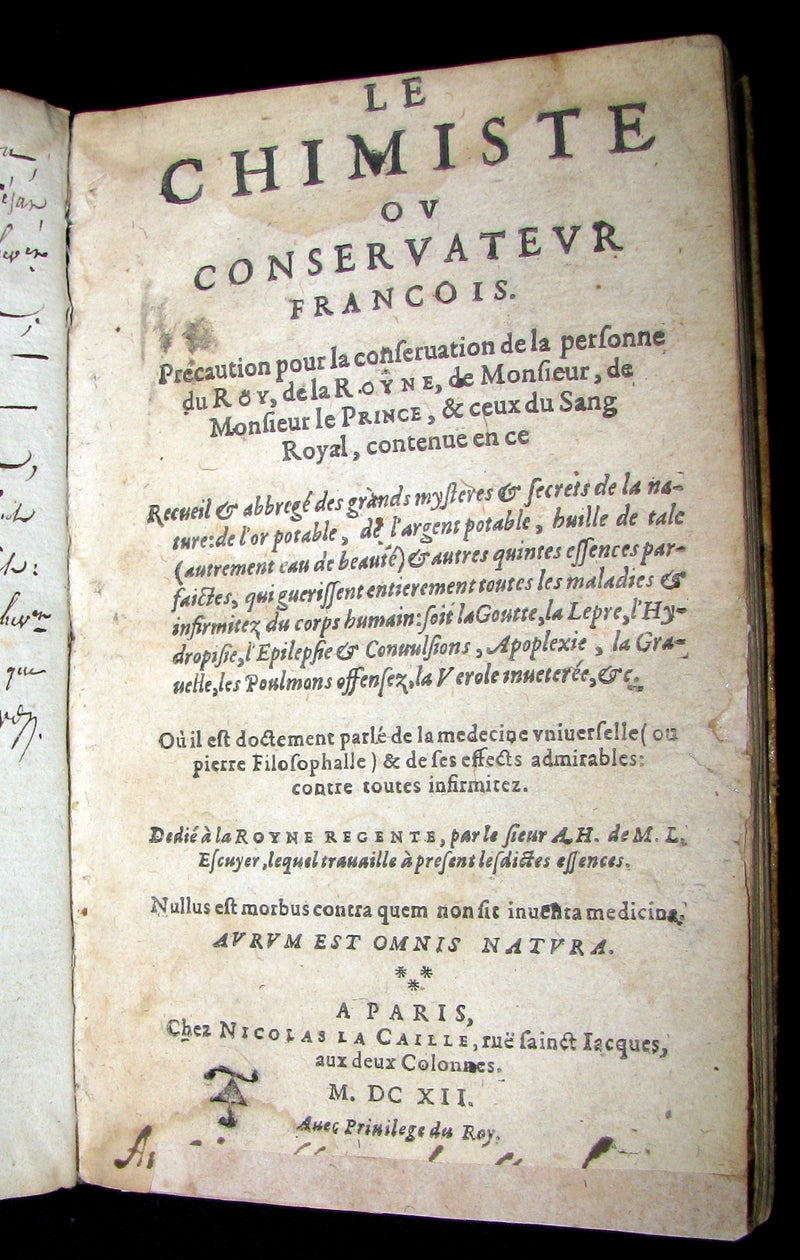 LE
CHIMISTE
OV
CONSERVATEVR
FRANCOIS.
Précaution pour la conſeruation de la perſonne
du ROY, de la ROYNE, de Monſieur, de
Monſieur le PRINCE, & ceux du Sang
Royal, contenuë en ce
Recueil & abbregé des grands myſteres & ſecrets de la na-
ture: de l'or potable, de l'argent potable, huille de talc
(autrement eau de beauté) & autres quintes eſſences par-
faictes, qui gueriſſent entierement toutes les maladies &
infirmitez du corps humain: ſoit la Goutte, la Lepre, l'Hy-
dropiſie, l'Epilepſie & Conuulſions, Apoplexie, la Gra-
uelle, les Poulmons offenſez, la Verole inueterée, &c.
Où il eſt doctement parlé de la medecine vniuerſelle (ou
pierre Filoſophalle) & de ſes effects admirables:
contre toutes infirmitez.
Dedié à la ROYNE REGENTE, par le ſieur A.H. de M. L.
Eſcuyer, lequel trauaille à preſent leſdictes eſſences.
Nullus eſt morbus contra quem non ſit inuenta medicina,
AVRVM EST OMNIS NATVRA.
* *
*
A PARIS,
Chez NICOLAS LA CAILLE, ruë ſainct Iacques,
aux deux Colonnes.
M. DC XII.
Auec Priuilege du Roy.